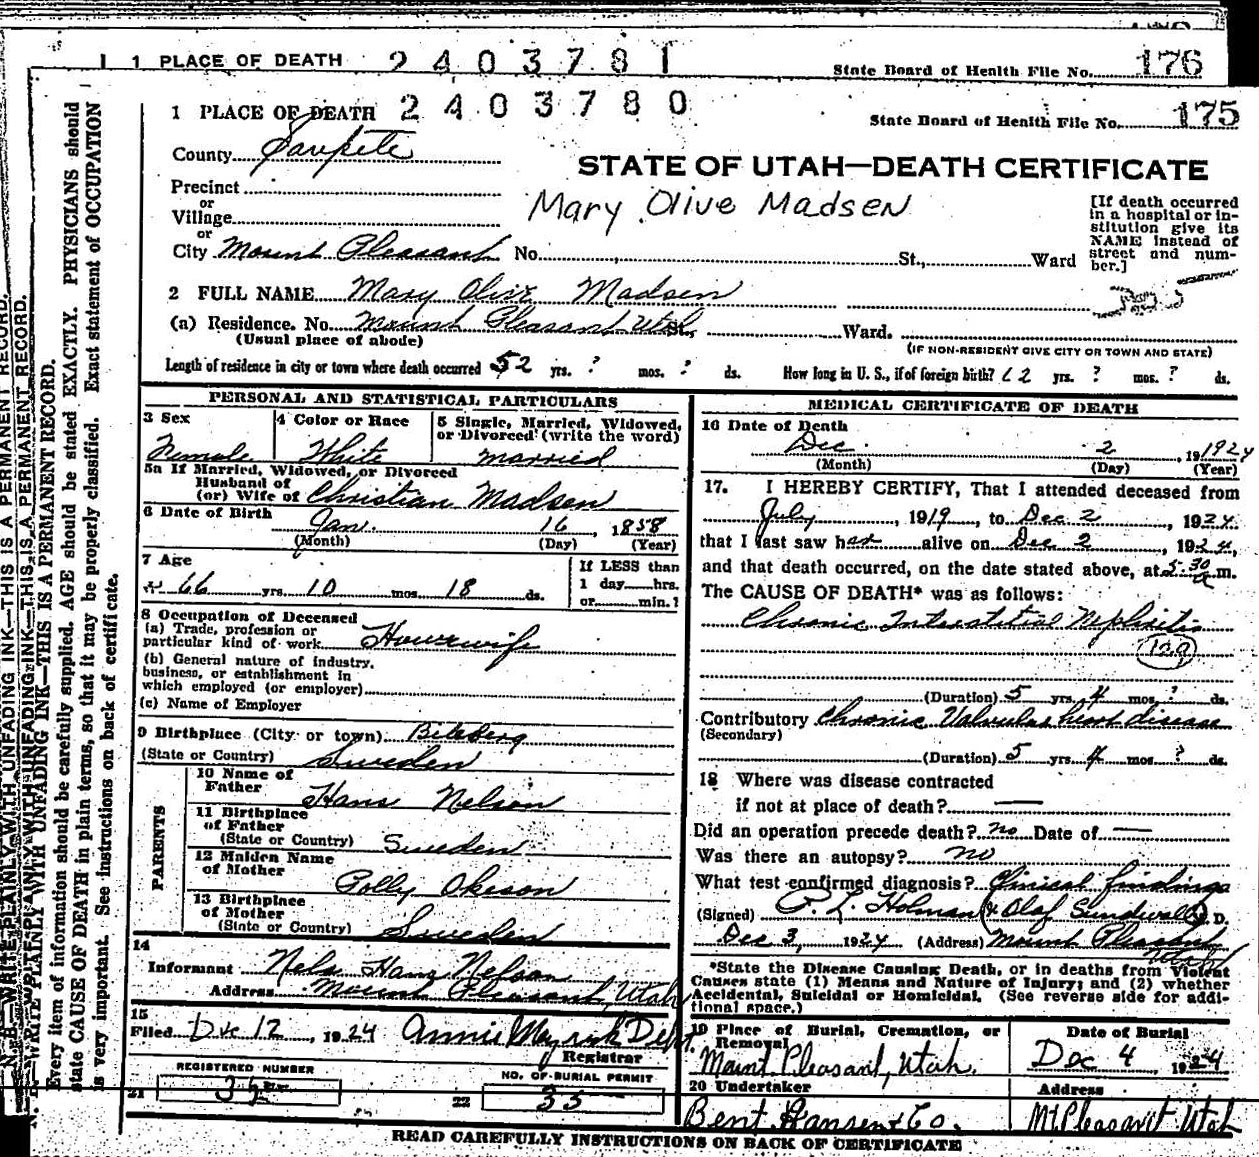 1 PLACE OF DEATH 2403781 State Board of Health File No. 176
1 PLACE OF DEATH 2403780 State Board of Health File No. 175
County Sanpete
STATE OF UTAH—DEATH CERTIFICATE
Precinct
or
Village
or
City Mount Pleasant No. , St., Ward
Mary Olive Madsen
[If death occurred
in a hospital or in-
stitution give its
NAME instead of
street and num-
ber.]
2 FULL NAME Mary Olive Madsen
(a) Residence. No. Mount Pleasant Utah St., Ward.
(Usual place of abode)
(IF NON-RESIDENT GIVE CITY OR TOWN AND STATE)
Length of residence in city or town where death occurred 52 yrs. ? mos. ? ds. How long in U. S., if of foreign birth? 62 yrs. ? mos. ? ds.
PERSONAL AND STATISTICAL PARTICULARS
3 Sex
Female
4 Color or Race
White
5 Single, Married, Widowed,
or Divorced (write the word)
Married
5a If Married, Widowed, or Divorced
Husband of
(or) Wife of Christian Madsen
6 Date of Birth
Jan. 16, 1858
(Month) (Day) (Year)
7 Age
66 yrs. 10 mos. 18 ds.
If LESS than
1 day hrs.
or min.?
8 Occupation of Deceased
(a) Trade, profession or
particular kind of work Housewife
(b) General nature of industry,
business, or establishment in
which employed (or employer)
(c) Name of Employer
9 Birthplace (City or town)
(State or Country) Sweden
PARENTS
10 Name of
Father Hans Nelson
11 Birthplace
of Father
(State or Country) Sweden
12 Maiden Name
of Mother Polly Okeson
13 Birthplace
of Mother
(State or Country) Sweden
14
Informant Nels Hans Nelson
Address Mount Pleasant, Utah
15
Filed Dec 12, 1924 Annie Dep.
Registrar
REGISTERED NUMBER
21 35
NO. OF BURIAL PERMIT
22 35
MEDICAL CERTIFICATE OF DEATH
16 Date of Death
Dec. 2, 1924
(Month) (Day) (Year)
17. I HEREBY CERTIFY, That I attended deceased from
July, 1919, to Dec 2, 1924.
that I last saw her alive on Dec 2, 1924,
and that death occurred, on the date stated above, at 5:30 a m.
The CAUSE OF DEATH* was as follows:
Chronic Interstitial Nephritis
129
(Duration) 5 yrs. 4 mos. ? ds.
Contributory Chronic Valvular heart disease
(Secondary)
(Duration) 5 yrs. 4 mos. ? ds.
18 Where was disease contracted
if not at place of death? —
Did an operation precede death? no Date of —
Was there an autopsy? no
What test confirmed diagnosis? Clinical findings
(Signed) P. L. Holman & Olaf Sundwall M. D.
Dec 3, 1924 (Address) Mount Pleasant
Utah
*State the Disease Causing Death, or in deaths from Violent
Causes state (1) Means and Nature of Injury; and (2) whether
Accidental, Suicidal or Homicidal. (See reverse side for addi-
tional space.)
19 Place of Burial, Cremation, or
Removal
Mount Pleasant, Utah.
Date of Burial
Dec 4 1924
20 Undertaker
Bent Hansen & Co.
Address
Mt Pleasant Utah
READ CAREFULLY INSTRUCTIONS ON BACK OF CERTIFICATE
N. B.—WRITE PLAINLY WITH UNFADING INK—THIS IS A PERMANENT RECORD.
Every item of information should be carefully supplied. AGE should be stated EXACTLY. PHYSICIANS should
state CAUSE OF DEATH in plain terms, so that it may be properly classified. Exact statement of OCCUPATION
is very important. See instructions on back of certificate.